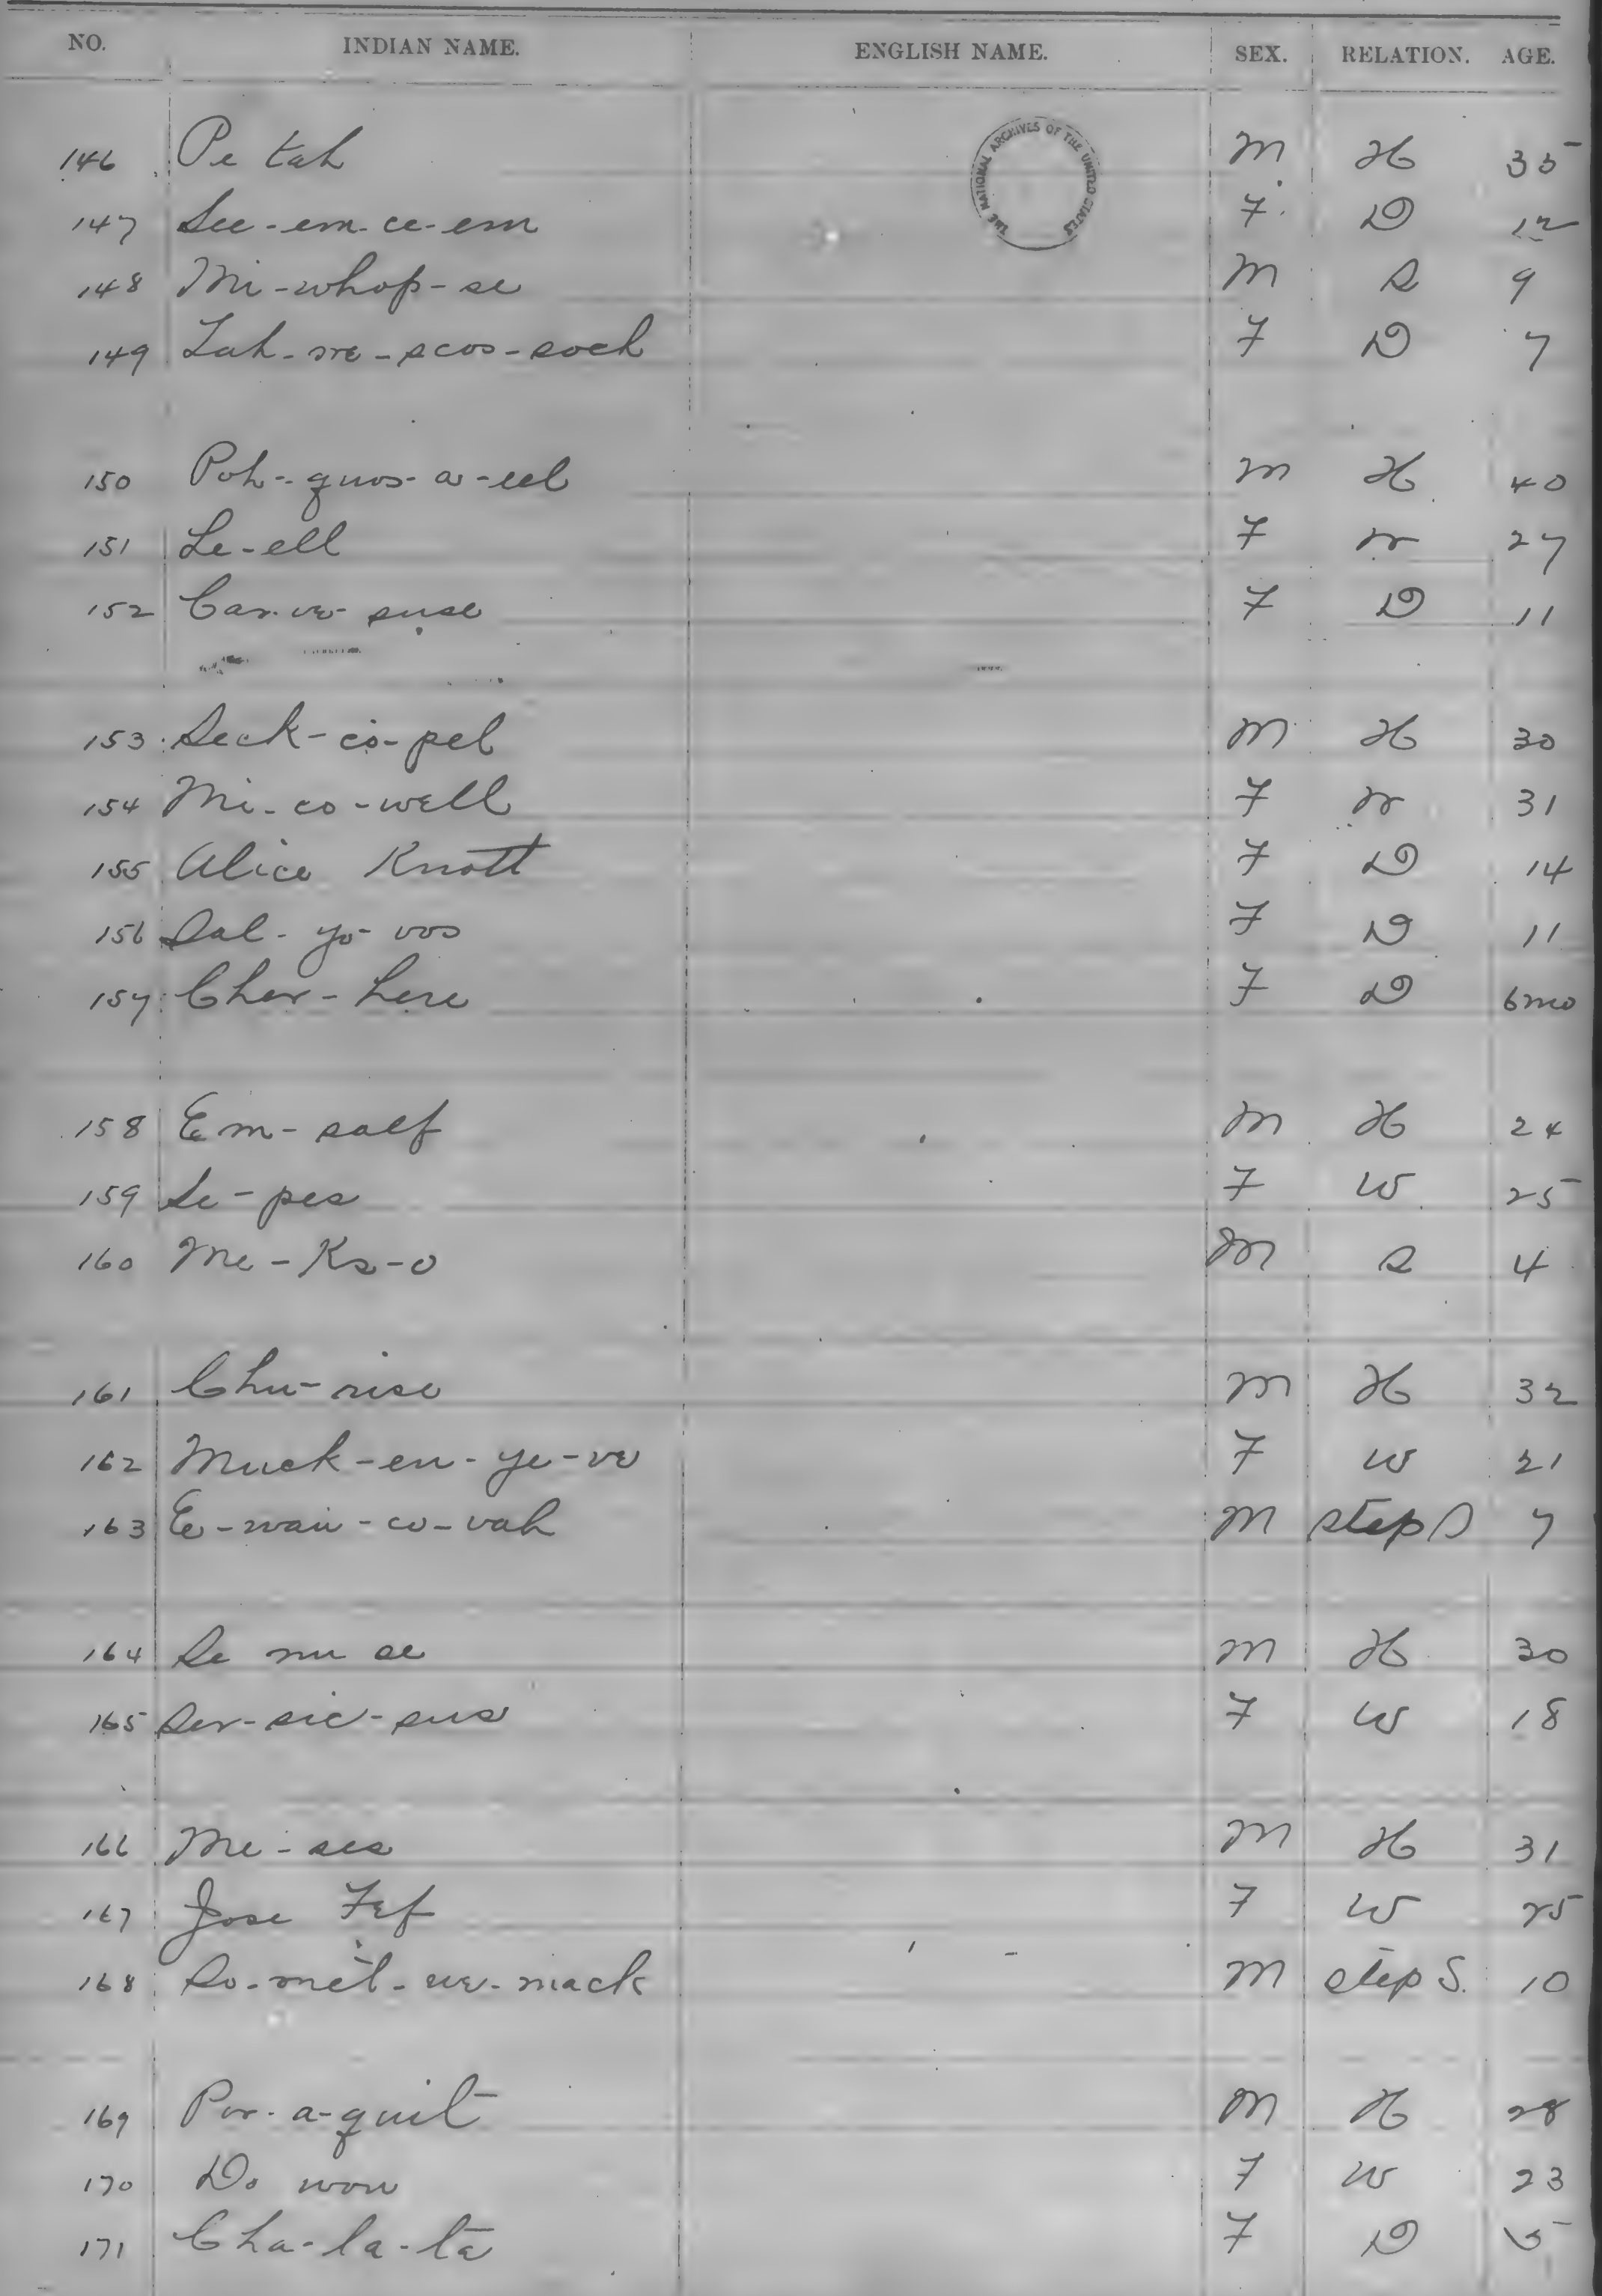 NO. INDIAN NAME. ENGLISH NAME. SEX. RELATION. AGE.
THE NATIONAL ARCHIVES OF THE UNITED STATES
146 Pe tah M H 35
147 See-em-ce-em F. D 12
148 Mi-whop-se M S 9
149 Lah-we-scos-soch F D 7
150 Poh-quos-a-eel M H 40
151 Le-ell F W 27
152 Car-ve-suse F D 11
153 Seck-co-pel M H 30
154 Mi-co-well F W 31
155 Alice Knott F D 14
156 Sal-yo-vos F D 11
157 Cher-here F D 6mo
158 Em-salf M H 24
159 Se-pes F W 25
160 Me-Ks-o M S 4
161 Chu-rise M H 32
162 Muck-en-ye-ve F W 21
163 E-wau-co-vah M step S 7
164 Se nu se M H 30
165 Ser-sic-sus F W 18
166 Me-ses M H 31
167 Jose Fef F W 25
168 So-met-we-mack M step S. 10
169 Por-a-quit M H 28
170 Do won F W 23
171 Cha-la-ta F D 5